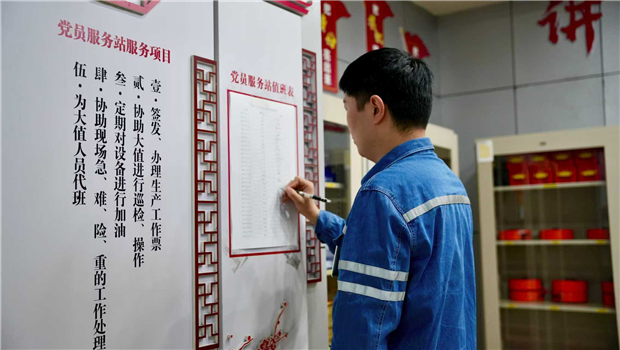 党员服务站服务项目
壹·签发、办理生产工作票
贰·协助大值进行巡检、操作
叁·定期对设备进行加油
肆·协助现场急、难、险、重的工作处理
伍·为大值人员代班
党员服务站值班表
讲